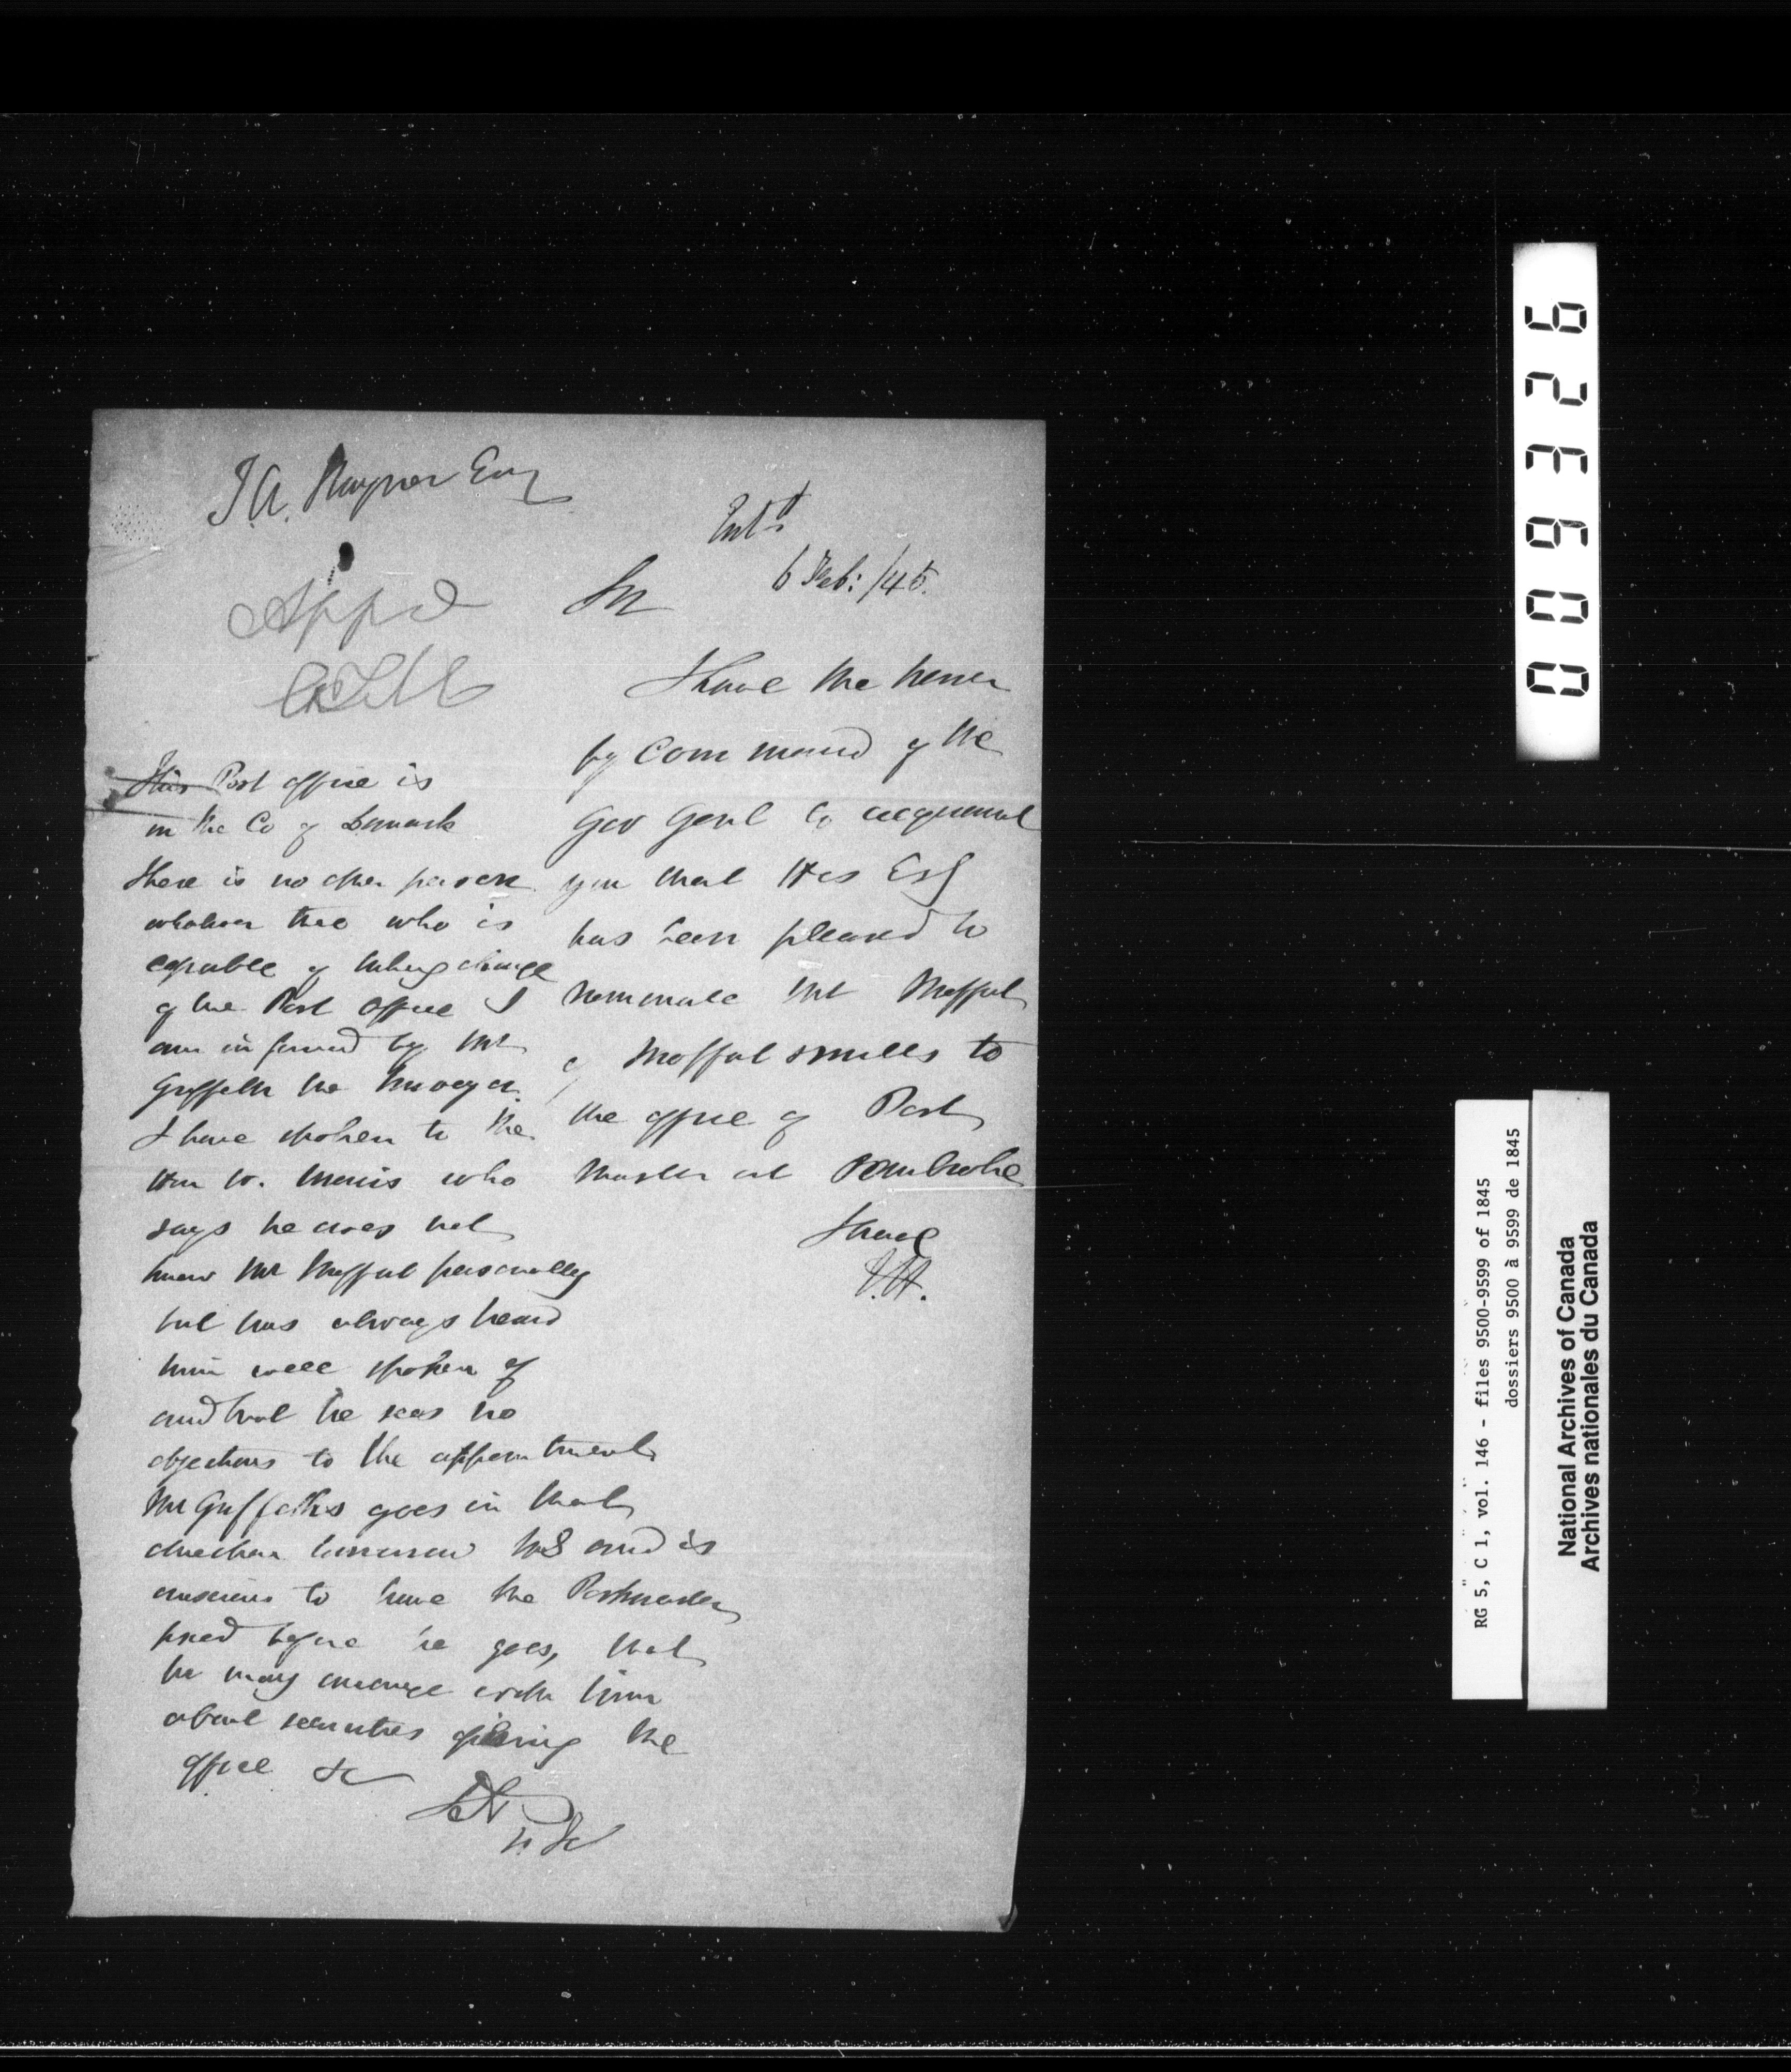 J.A. Esq
Entd
6 Feb: /45.
Sir
Appd
I have the honor
by Command of the
Gov Genl to acquaint
you that His Exy
has been pleased to
nominate Mr Moffat
of Moffat's mills to
the office of Post
Master at Pembroke
I have
This Post office is
in the Co of Lanark
there is no other person
who is
capable of taking charge
of the Post Office I
am informed by Mr
Griffith the
I have spoken to the
Hon W. Morris who
says he does not
know Mr Moffat personally
but has always heard
him well spoken of
and that he sees no
objections to the appointment
Mr Griffiths goes in that
direction tomorrow and is
anxious to have the Postmaster
fixed before he goes, that
he may arrange with him
about securities opening the
office &c
009326
RG 5, C 1, vol. 146 - files 9500-9599 of 1845
dossiers 9500 à 9599 de 1845
National Archives of Canada
Archives nationales du Canada